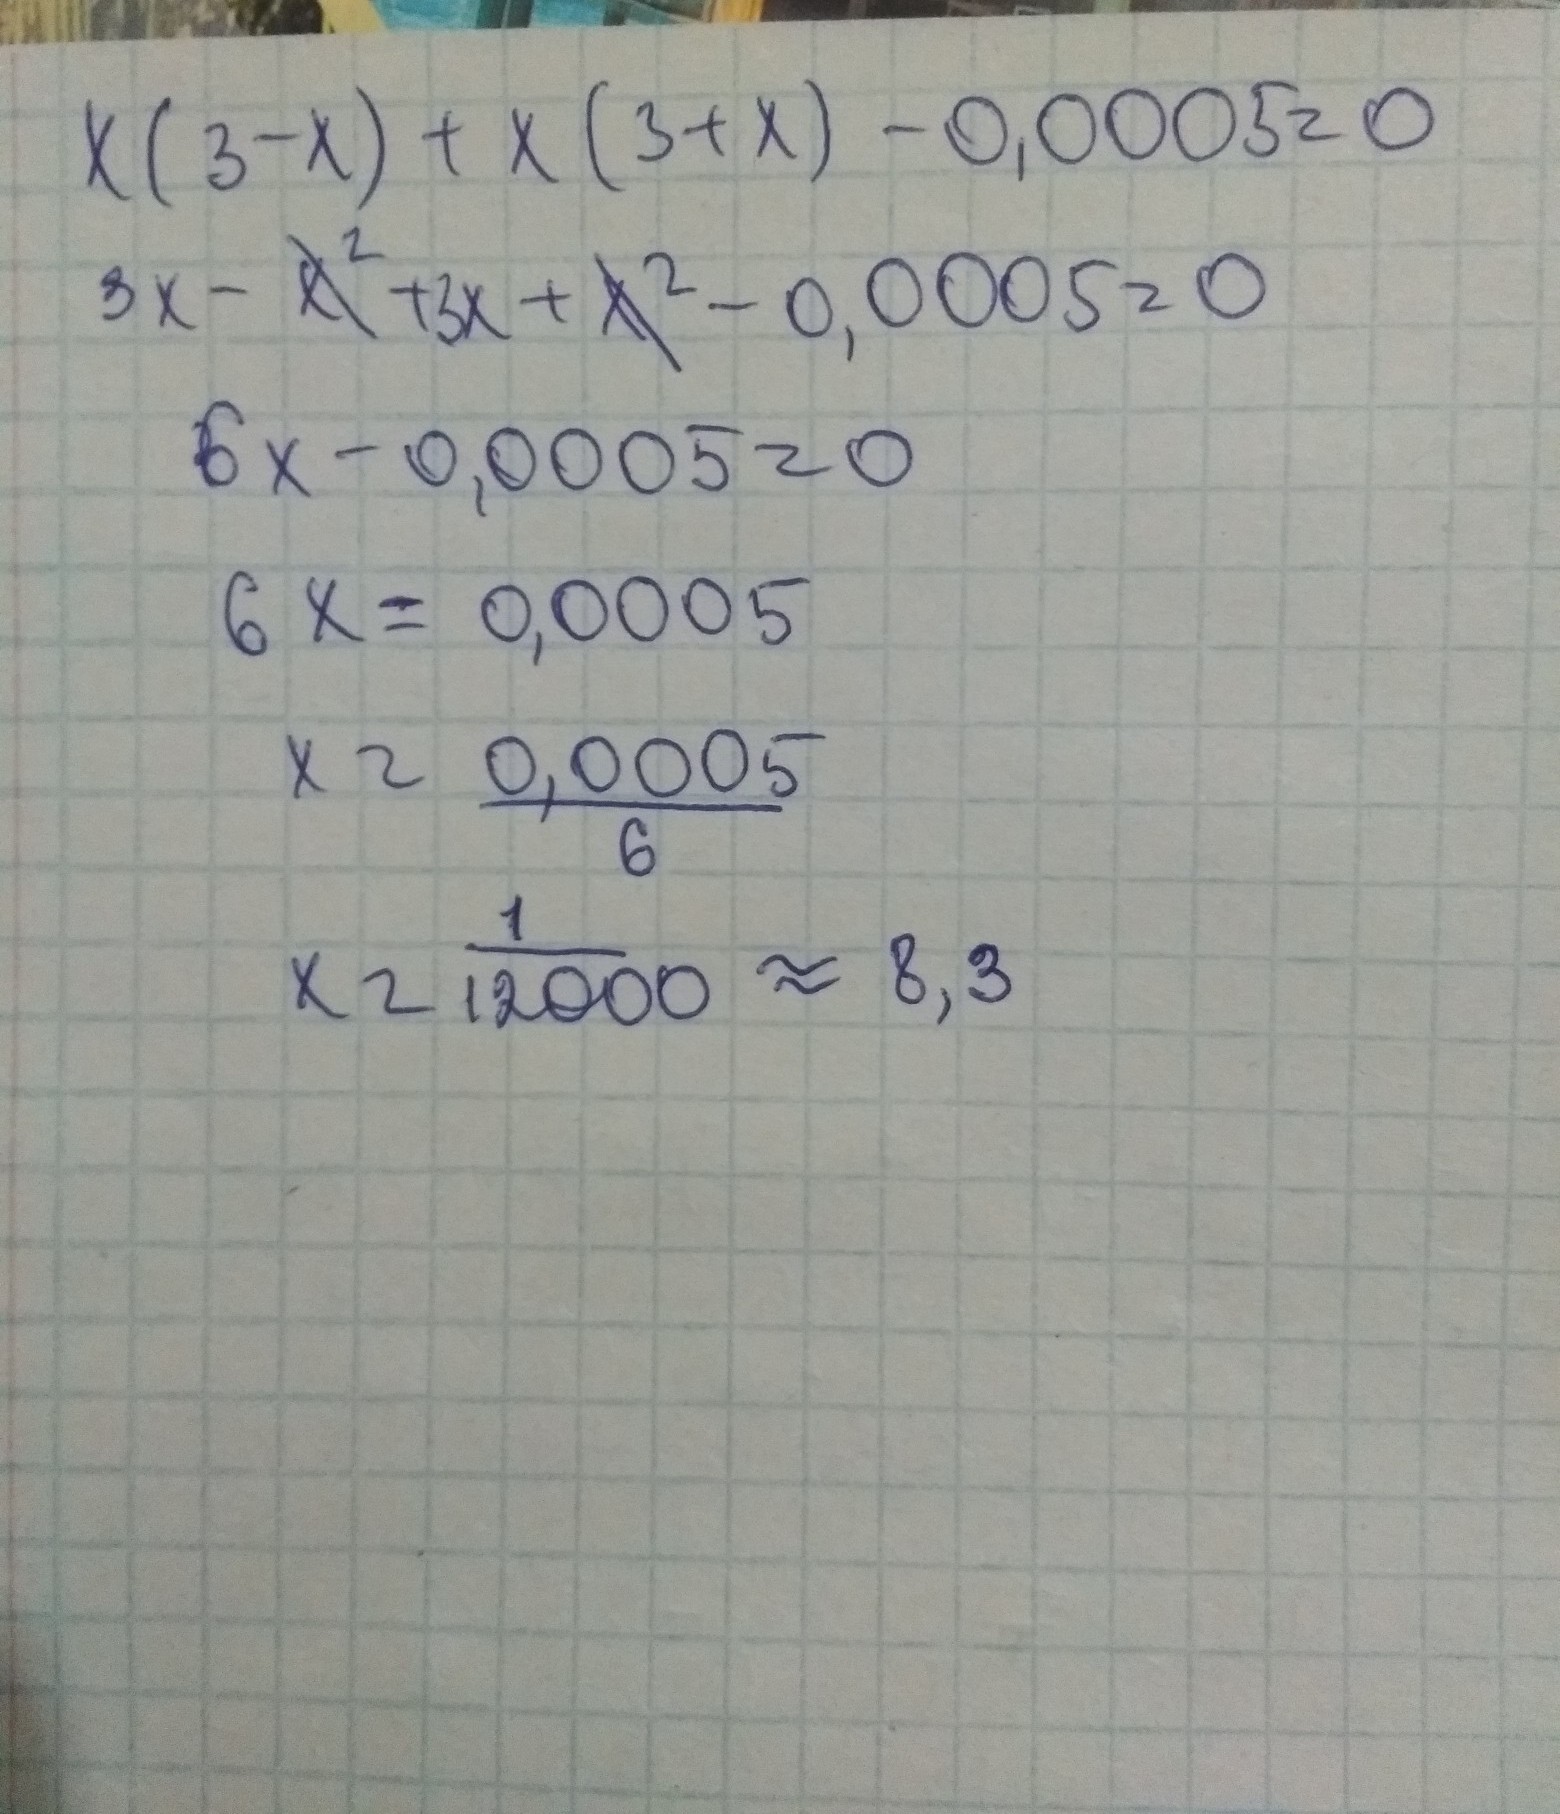 x(3-x)+x(3+x)-0,0005=0
3x-x²+3x+x²-0,0005=0
6x-0,0005=0
6x=0,0005
x=0,0005/6
x=1/12000≈8,3